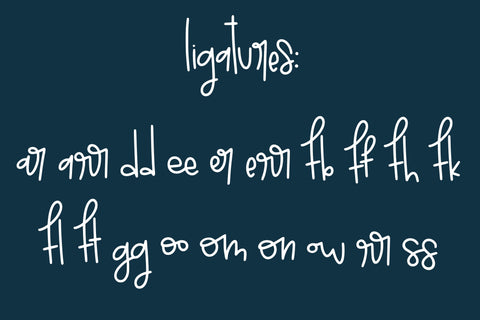 ligatures:
ar arr dd ee er err fb ff fh fk
fl ft gg oo om on ow rr ss